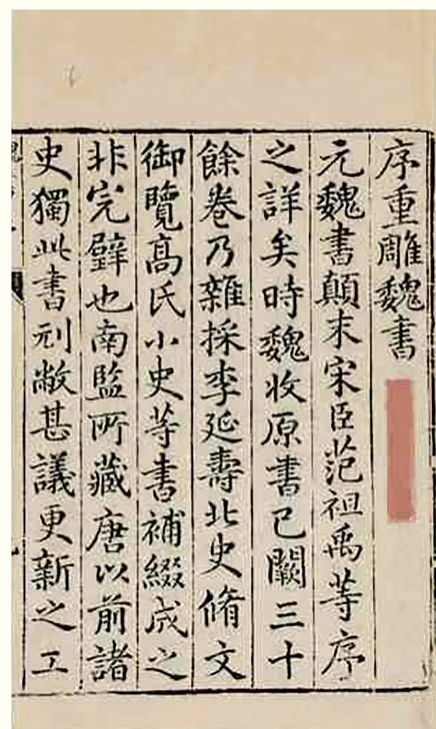 序重雕魏書
元魏書顛末宋臣范祖禹等序
之詳矣時魏收原書已闕三十
餘卷乃雜採李延壽北史脩文
御覽高氏小史等書補綴成之
非完璧也南監所藏唐以前諸
史獨此書刓敝甚議更新之工